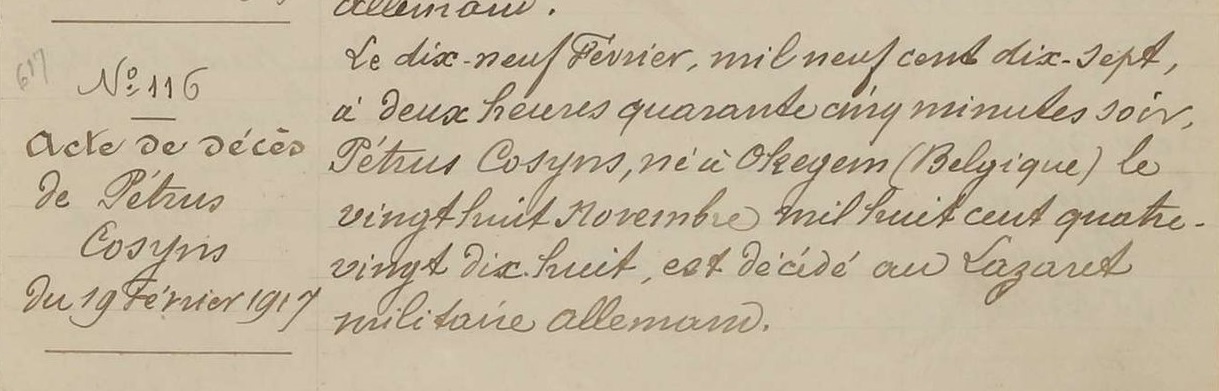 allemand.
617
Nº 116
Acte de décès
de Pétrus
Cosyns
du 19 Février 1917
Le dix-neuf Février, mil neuf cent dix-sept,
à deux heures quarante cinq minutes soir,
Pétrus Cosyns, né à Okegem (Belgique) le
vingt huit Novembre mil huit cent quatre-
vingt dix-huit, est décidé au Lazaret
militaire allemand.